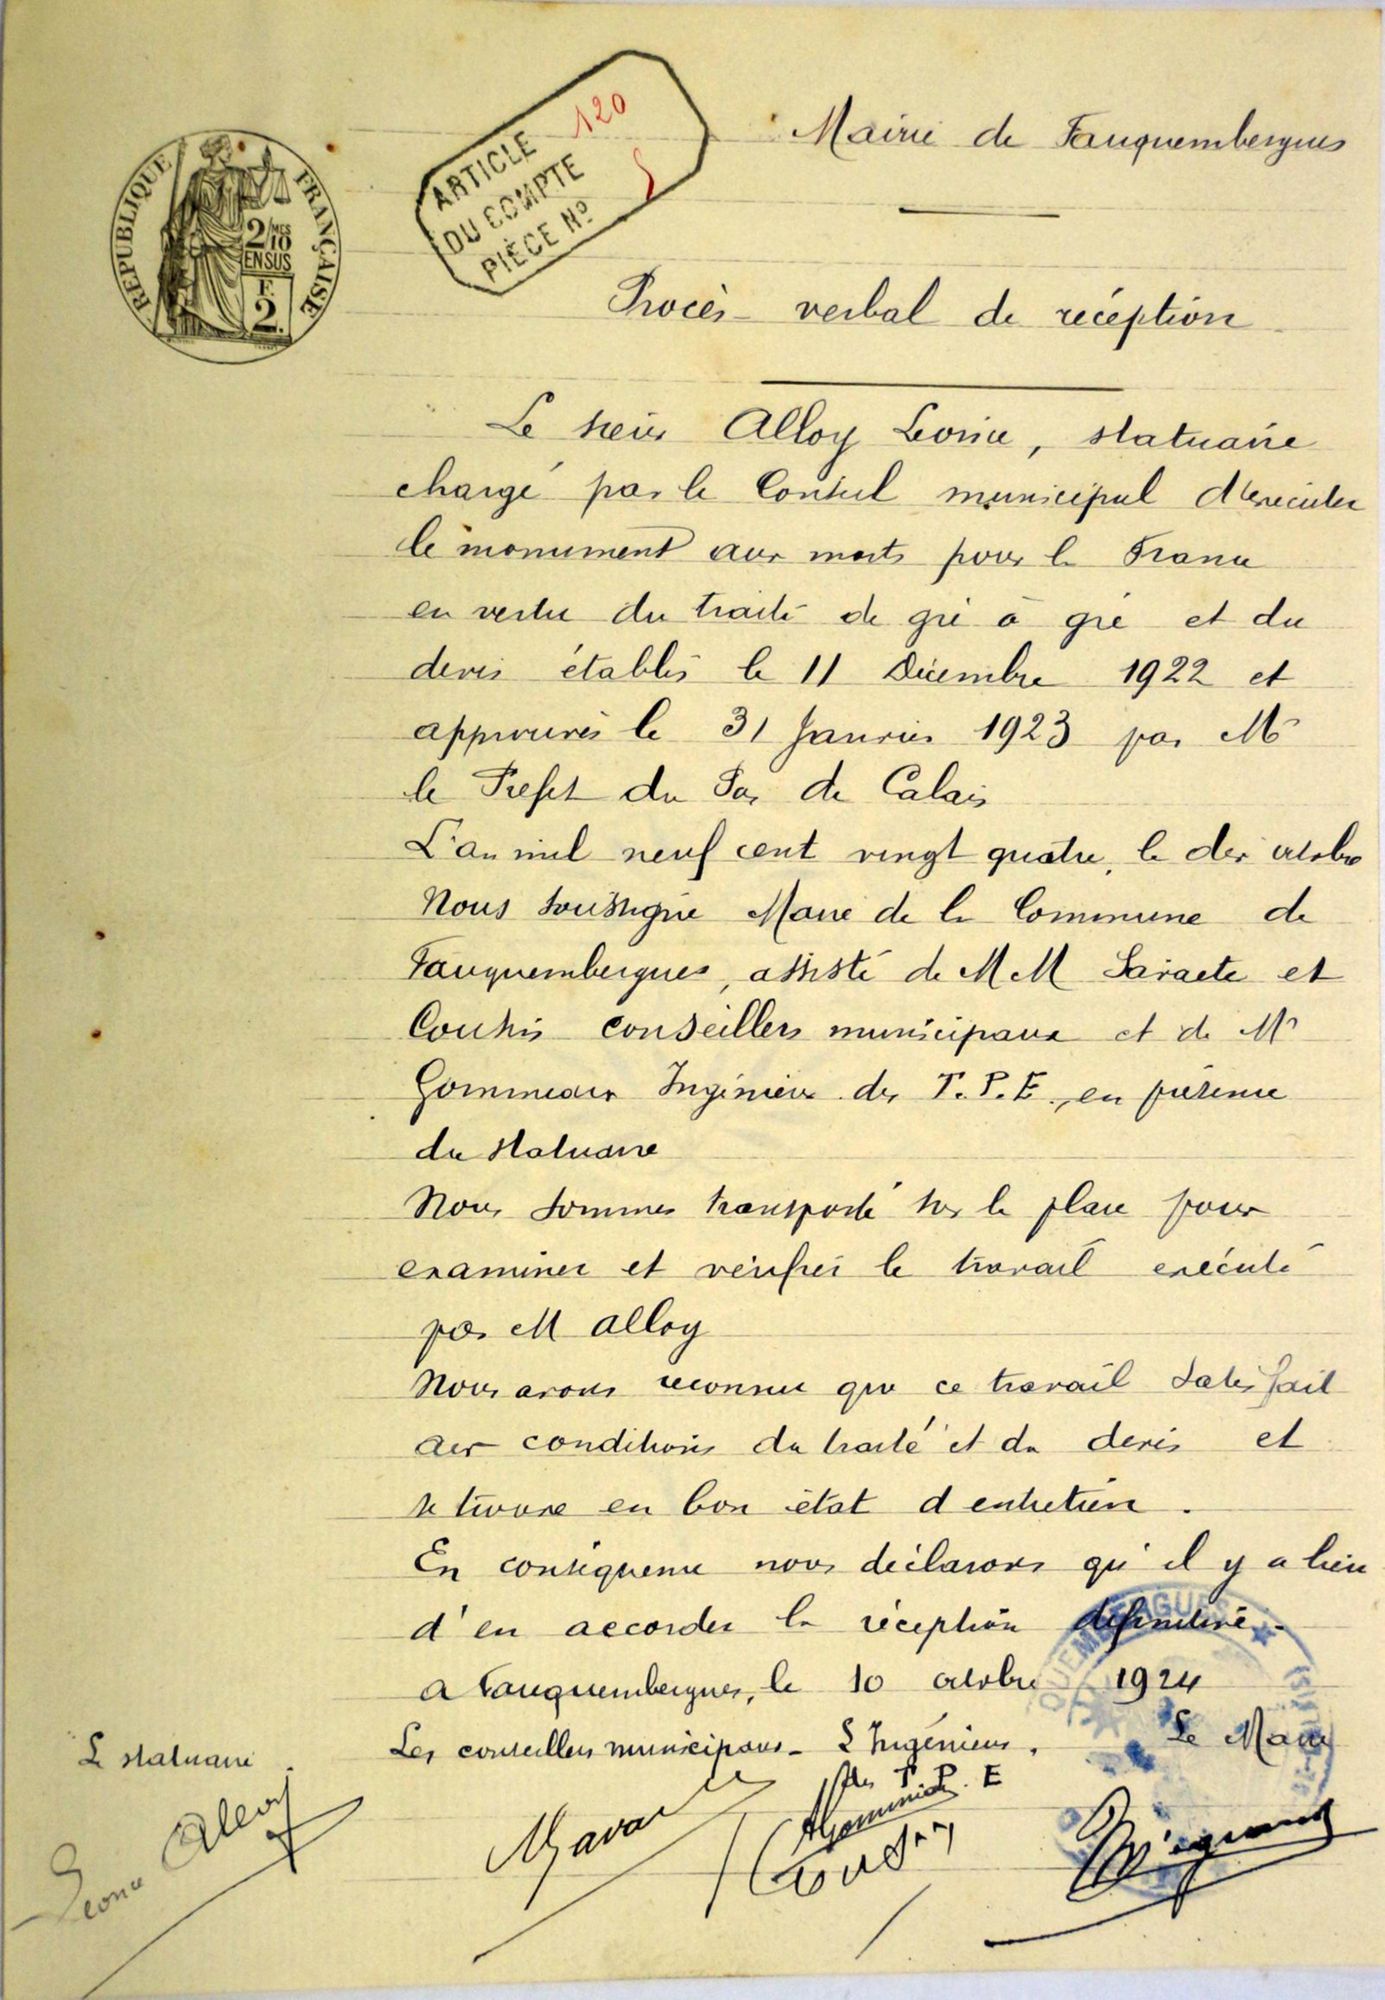 RÉPUBLIQUE FRANÇAISE
2/10 MES
EN SUS
F.
2.
ARTICLE 120
DU COMPTE
PIÈCE Nº 5
Mairie de Fauquembergues
Procès-verbal de réception
Le sieur Alloy Léonce, statuaire
chargé par le Conseil municipal d'exécuter
le monument aux morts pour la France
en vertu du traité de gré à gré et du
devis établis le 11 Décembre 1922 et
approuvés le 31 Janvier 1923 par Mr
le Préfet du Pas de Calais
L'an mil neuf cent vingt quatre, le dix octobre
Nous soussigné Maire de la Commune de
Fauquembergues, assisté de MM et
conseillers municipaux et de Mr
Ingénieur des T.P.E., en présence
du statuaire
Nous sommes transporté sur la place pour
examiner et vérifier le travail exécuté
par M Alloy
Nous avons reconnu que ce travail satisfait
aux conditions du traité et du devis et
se trouve en bon état d'entretien.
En conséquence nous déclarons qu'il y a lieu
d'en accorder la réception définitive.
A Fauquembergues, le 10 octobre 1924
Le statuaire Les conseillers municipaux - L'Ingénieur. Le Maire
des T.P.E
Léonce Alloy
QUEMBERGUES